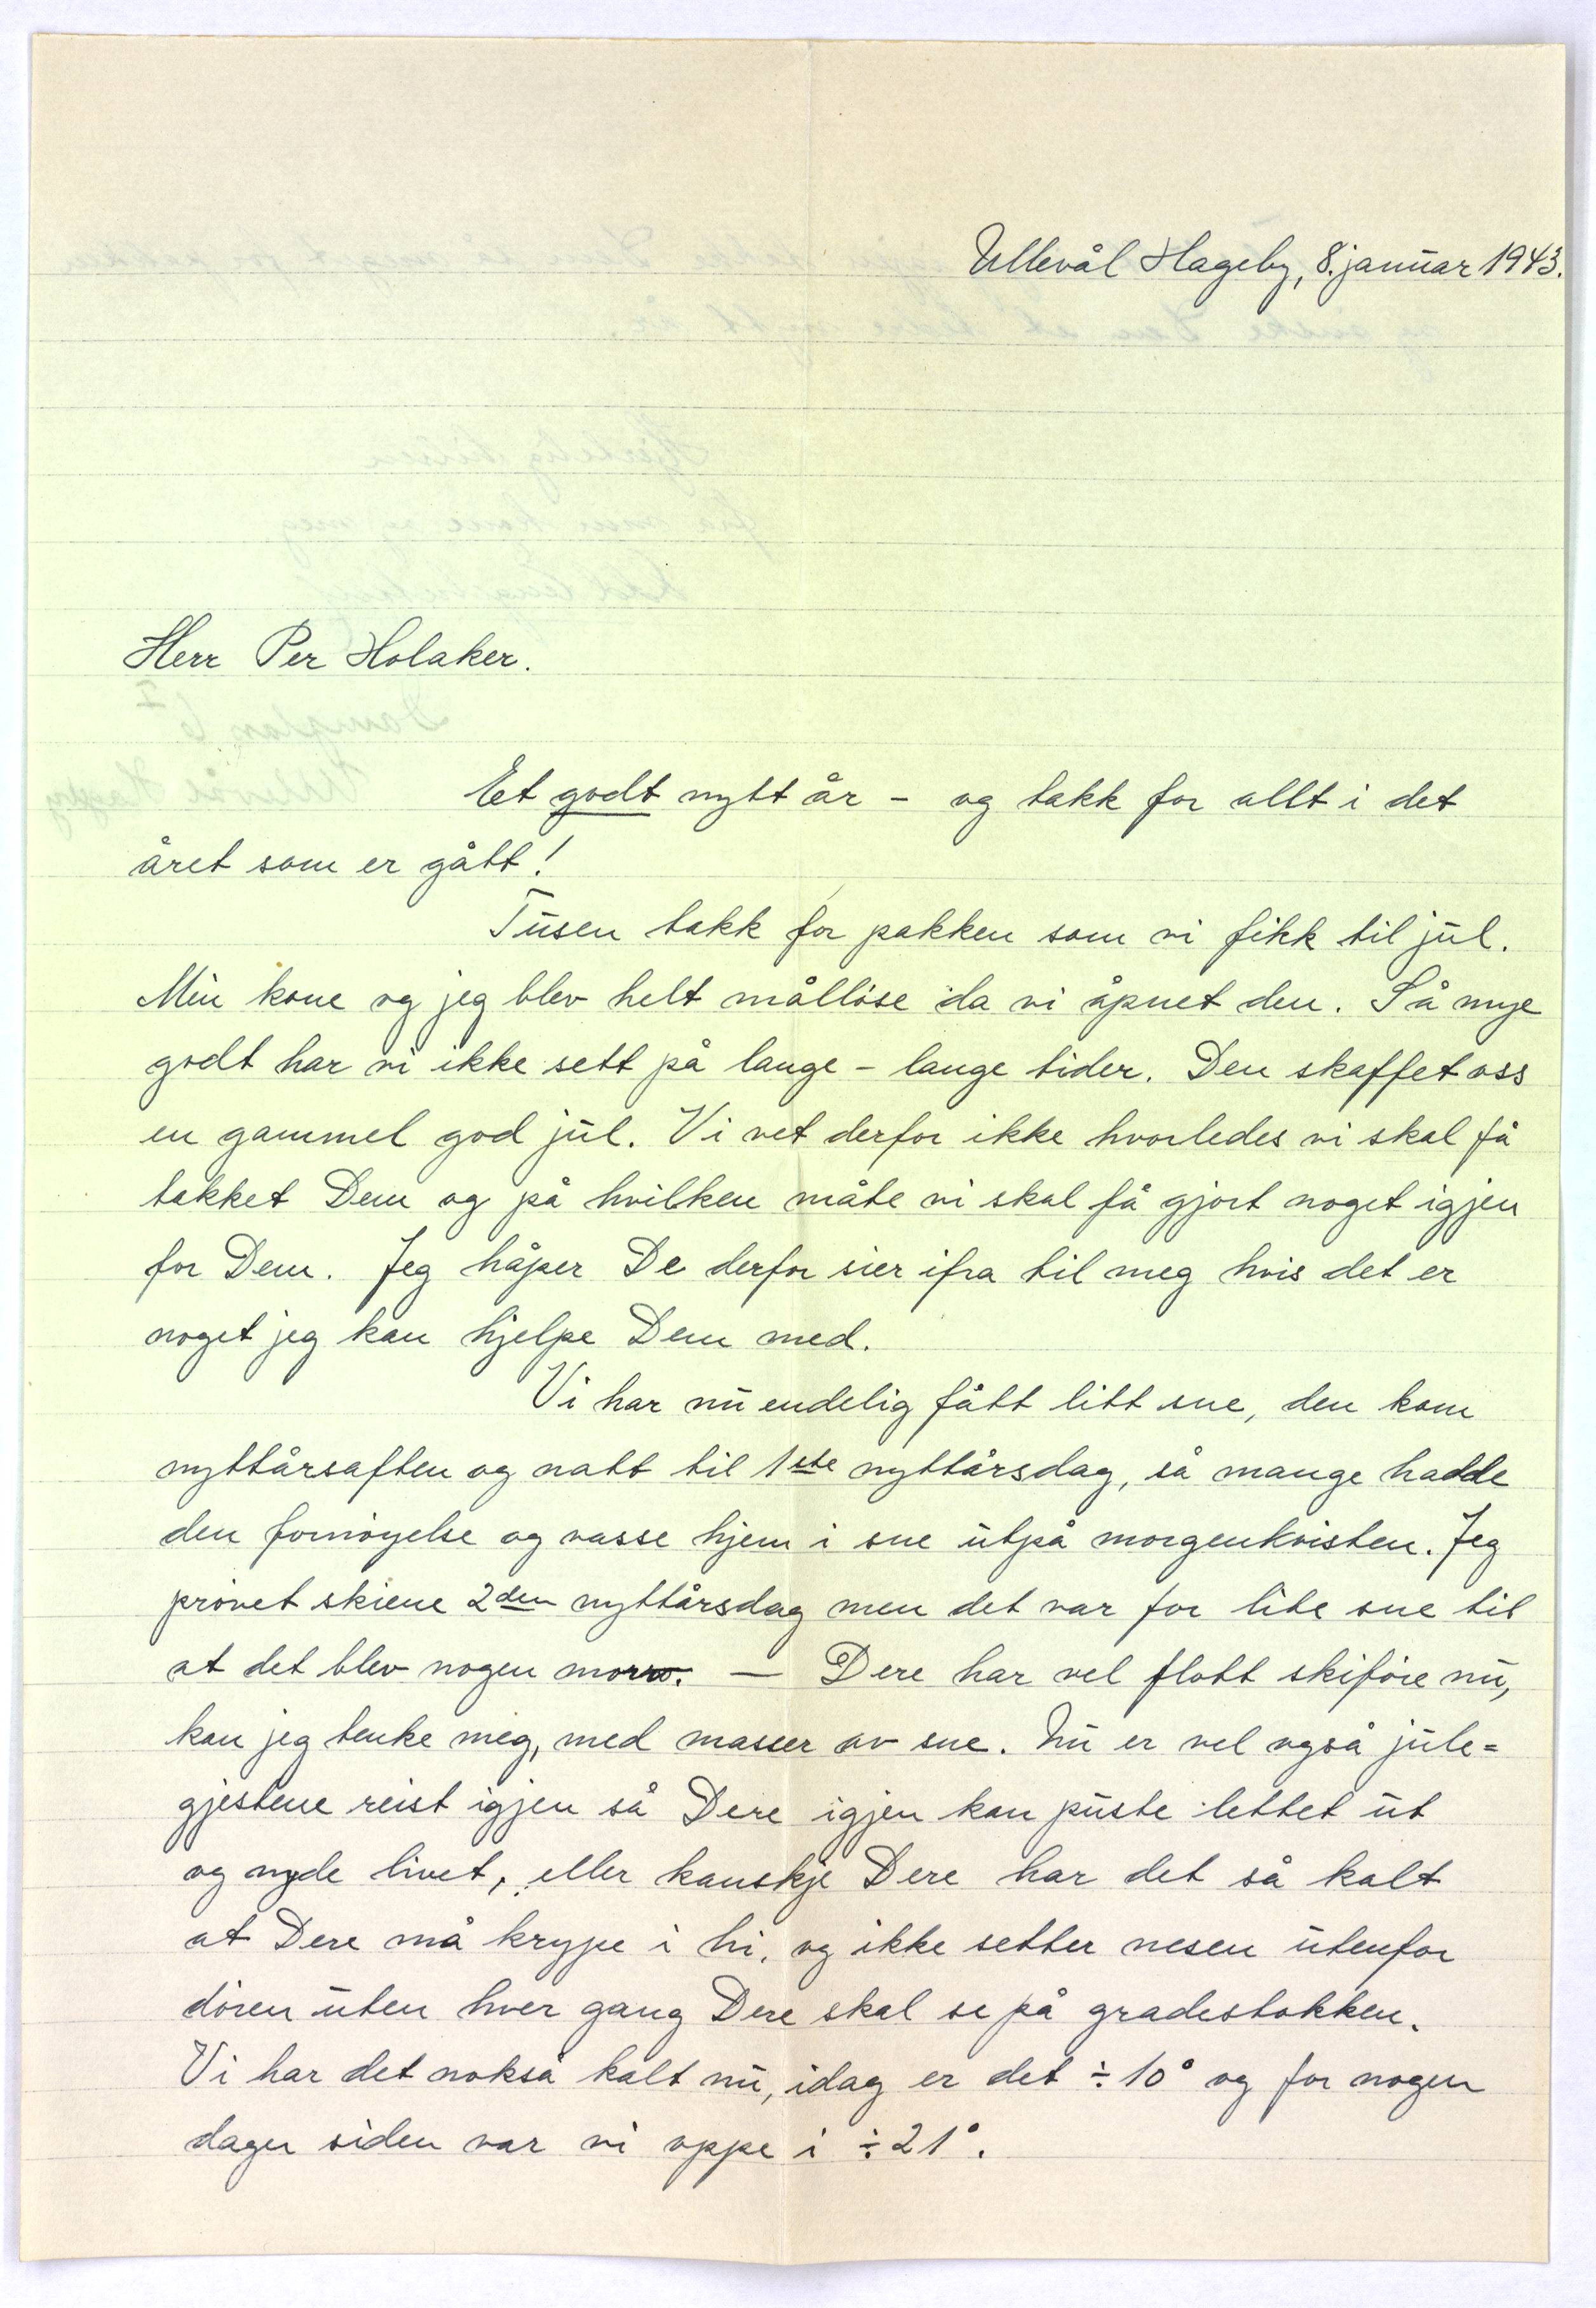 Ullevål Hageby, 8. januar 1943.
Herr Per Holaker.
Et godt nytt år – og takk for allt i det
året som er gått!
Tusen takk for pakken som vi fikk til jul.
Min kone og jeg blev helt målløse da vi åpnet den. Så mye
godt har vi ikke sett på lange – lange tider. Den skaffet oss
en gammel god jul. Vi vet derfor ikke hvorledes vi skal få
takket Dem og på hvilken måte vi skal få gjort noget igjen
for Dem. Jeg håper De derfor sier ifra til meg hvis det er
noget jeg kan hjelpe Dem med.
Vi har nu endelig fått litt sne, den kom
nyttårsaften og natt til 1ste nyttårsdag, så mange hadde
den fornøyelse og vasse hjem i sne utpå morgenkvisten. Jeg
prøvet skiene 2den nyttårsdag men det var for lite sne til
at det blev nogen morro. — Dere har vel flott skiføre nu,
kan jeg tenke meg, med masser av sne. Nu er vel også jule=
gjestene reist igjen så Dere igjen kan puste lettet ut
og nyde livet, eller kanskje Dere har det så kalt
at Dere må krype i hi, og ikke setter nesen utenfor
døren uten hver gang Dere skal se på gradestokken.
Vi har det nokså kalt nu, idag er det ÷ 10° og for nogen
dager siden var vi oppe i ÷ 21°.